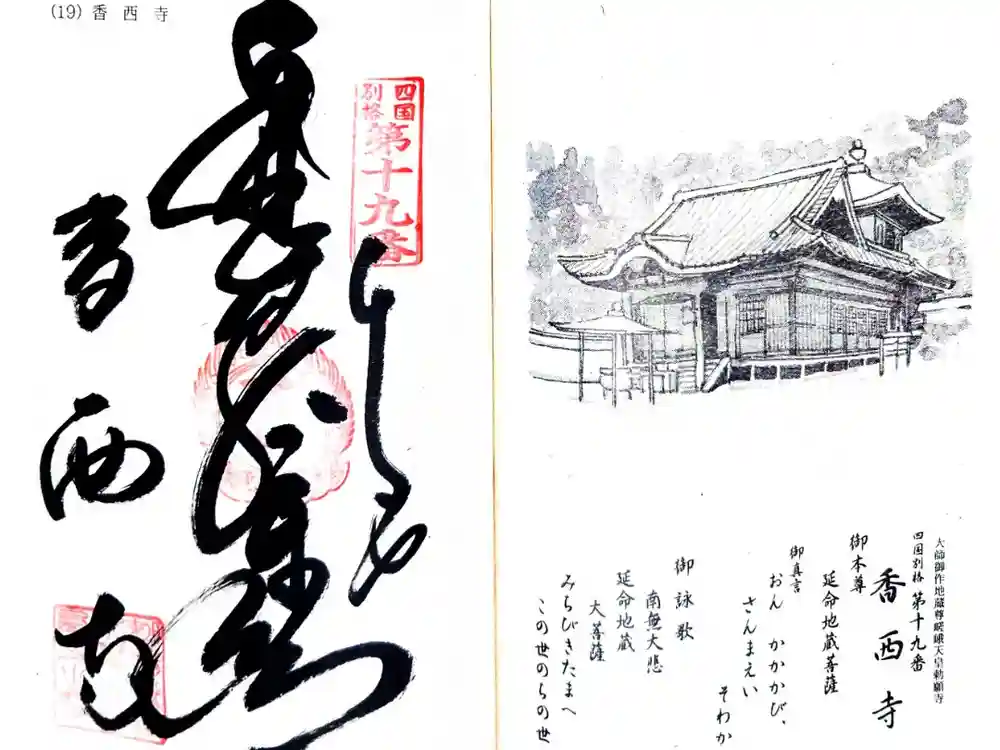 (19) 香西寺
四国
別格
第十九番
香西寺
大師御作地蔵尊嵯峨天皇勅願寺
四国別格 第十九番
香西寺
御本尊
延命地蔵菩薩
御真言
おん かかかび、
さんまえい
そわか
御詠歌
南無大悲
延命地蔵
大菩薩
みちびきたまへ
この世のちの世